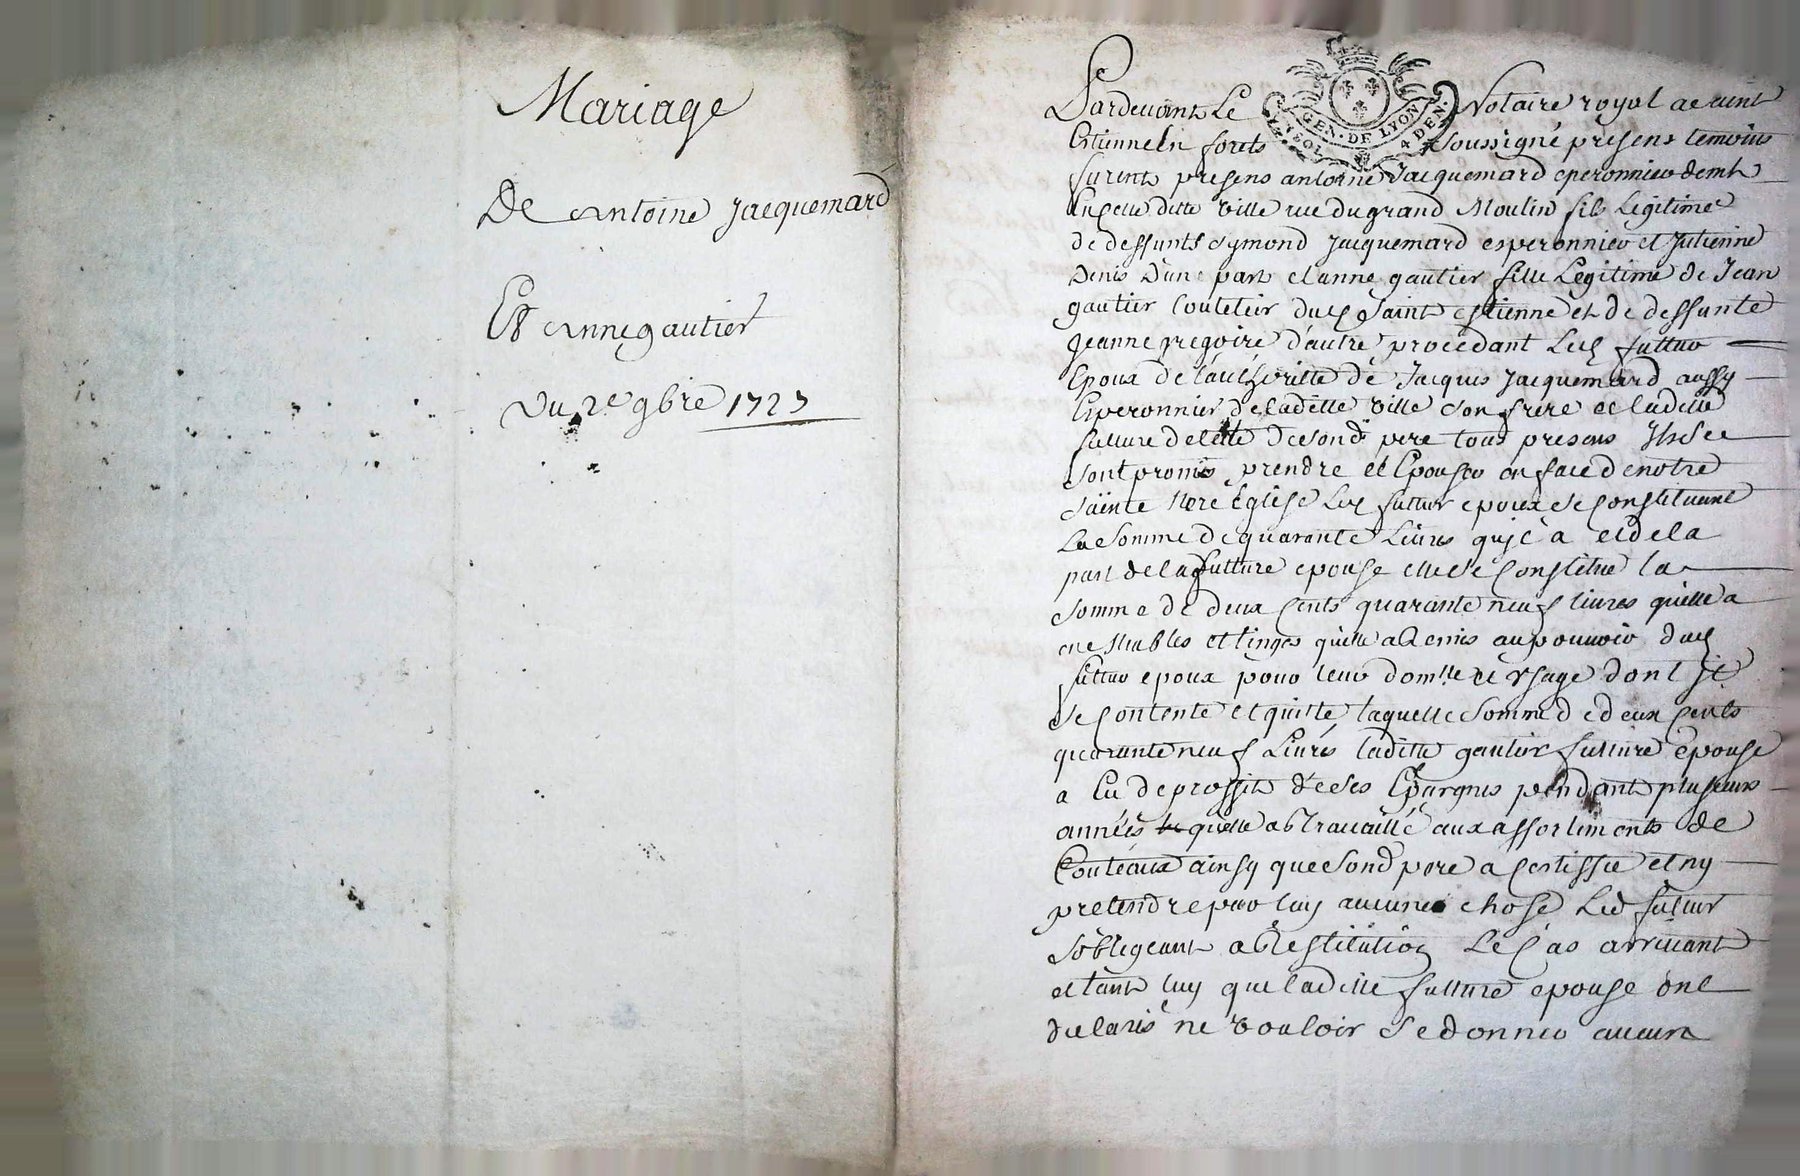 Mariage
De Antoine Jacquemard
Et Anne gautier
Du 2e 9bre 1727
Pardevant Le Notaire royal
GEN. DE LYON
4 DEN.
Etienne En forets soussigné presens temoins
furent presens antoine Jacquemard eperonnier demt
En cette ditte ville rue du grand Moulin fils Legitime
de deffunts Symond Jacquemard esperonnier et Julienne
Denis D'une part et anne gautier fille Legitime de Jean
gautier Coutelier dud Saint estienne et de deffunte
Jeanne gregoire d'autre procedant Led futtur
Epoux de l'authoritté de Jacques Jacquemard aussy
Esperonnier de laditte ville son frere et laditte
future de celle de sond pere tous presens Ils se
sont promis prendre et Epouser en face de notre
sainte Mere Eglise Led futtur epoux se Constituant
La somme de quarante Livres qu'jl a et de la
part de la futture epouse elle se Constitue la
somme de deux Cents quarante neuf livres quelle a
en Meubles et linges qu'elle a Remis au pouvoir dud
futtur epoux pour leur domlle et Vsage dont jl
se Contente et quitte laquelle somme de deux Cents
quarante neuf Livres laditte gautier future epouse
a Eu de proffit de ses Epargnes pendant plusieurs
années quelle a travaillé aux assortiments de
Couteaux ainsy que sond pere a Certiffié et ny
pretendre pour luy aucune chose Led futur
s'obligeant a Restitution Le Cas arrivant
et tant luy que laditte future epouse ont
declaré ne vouloir se donner aucun